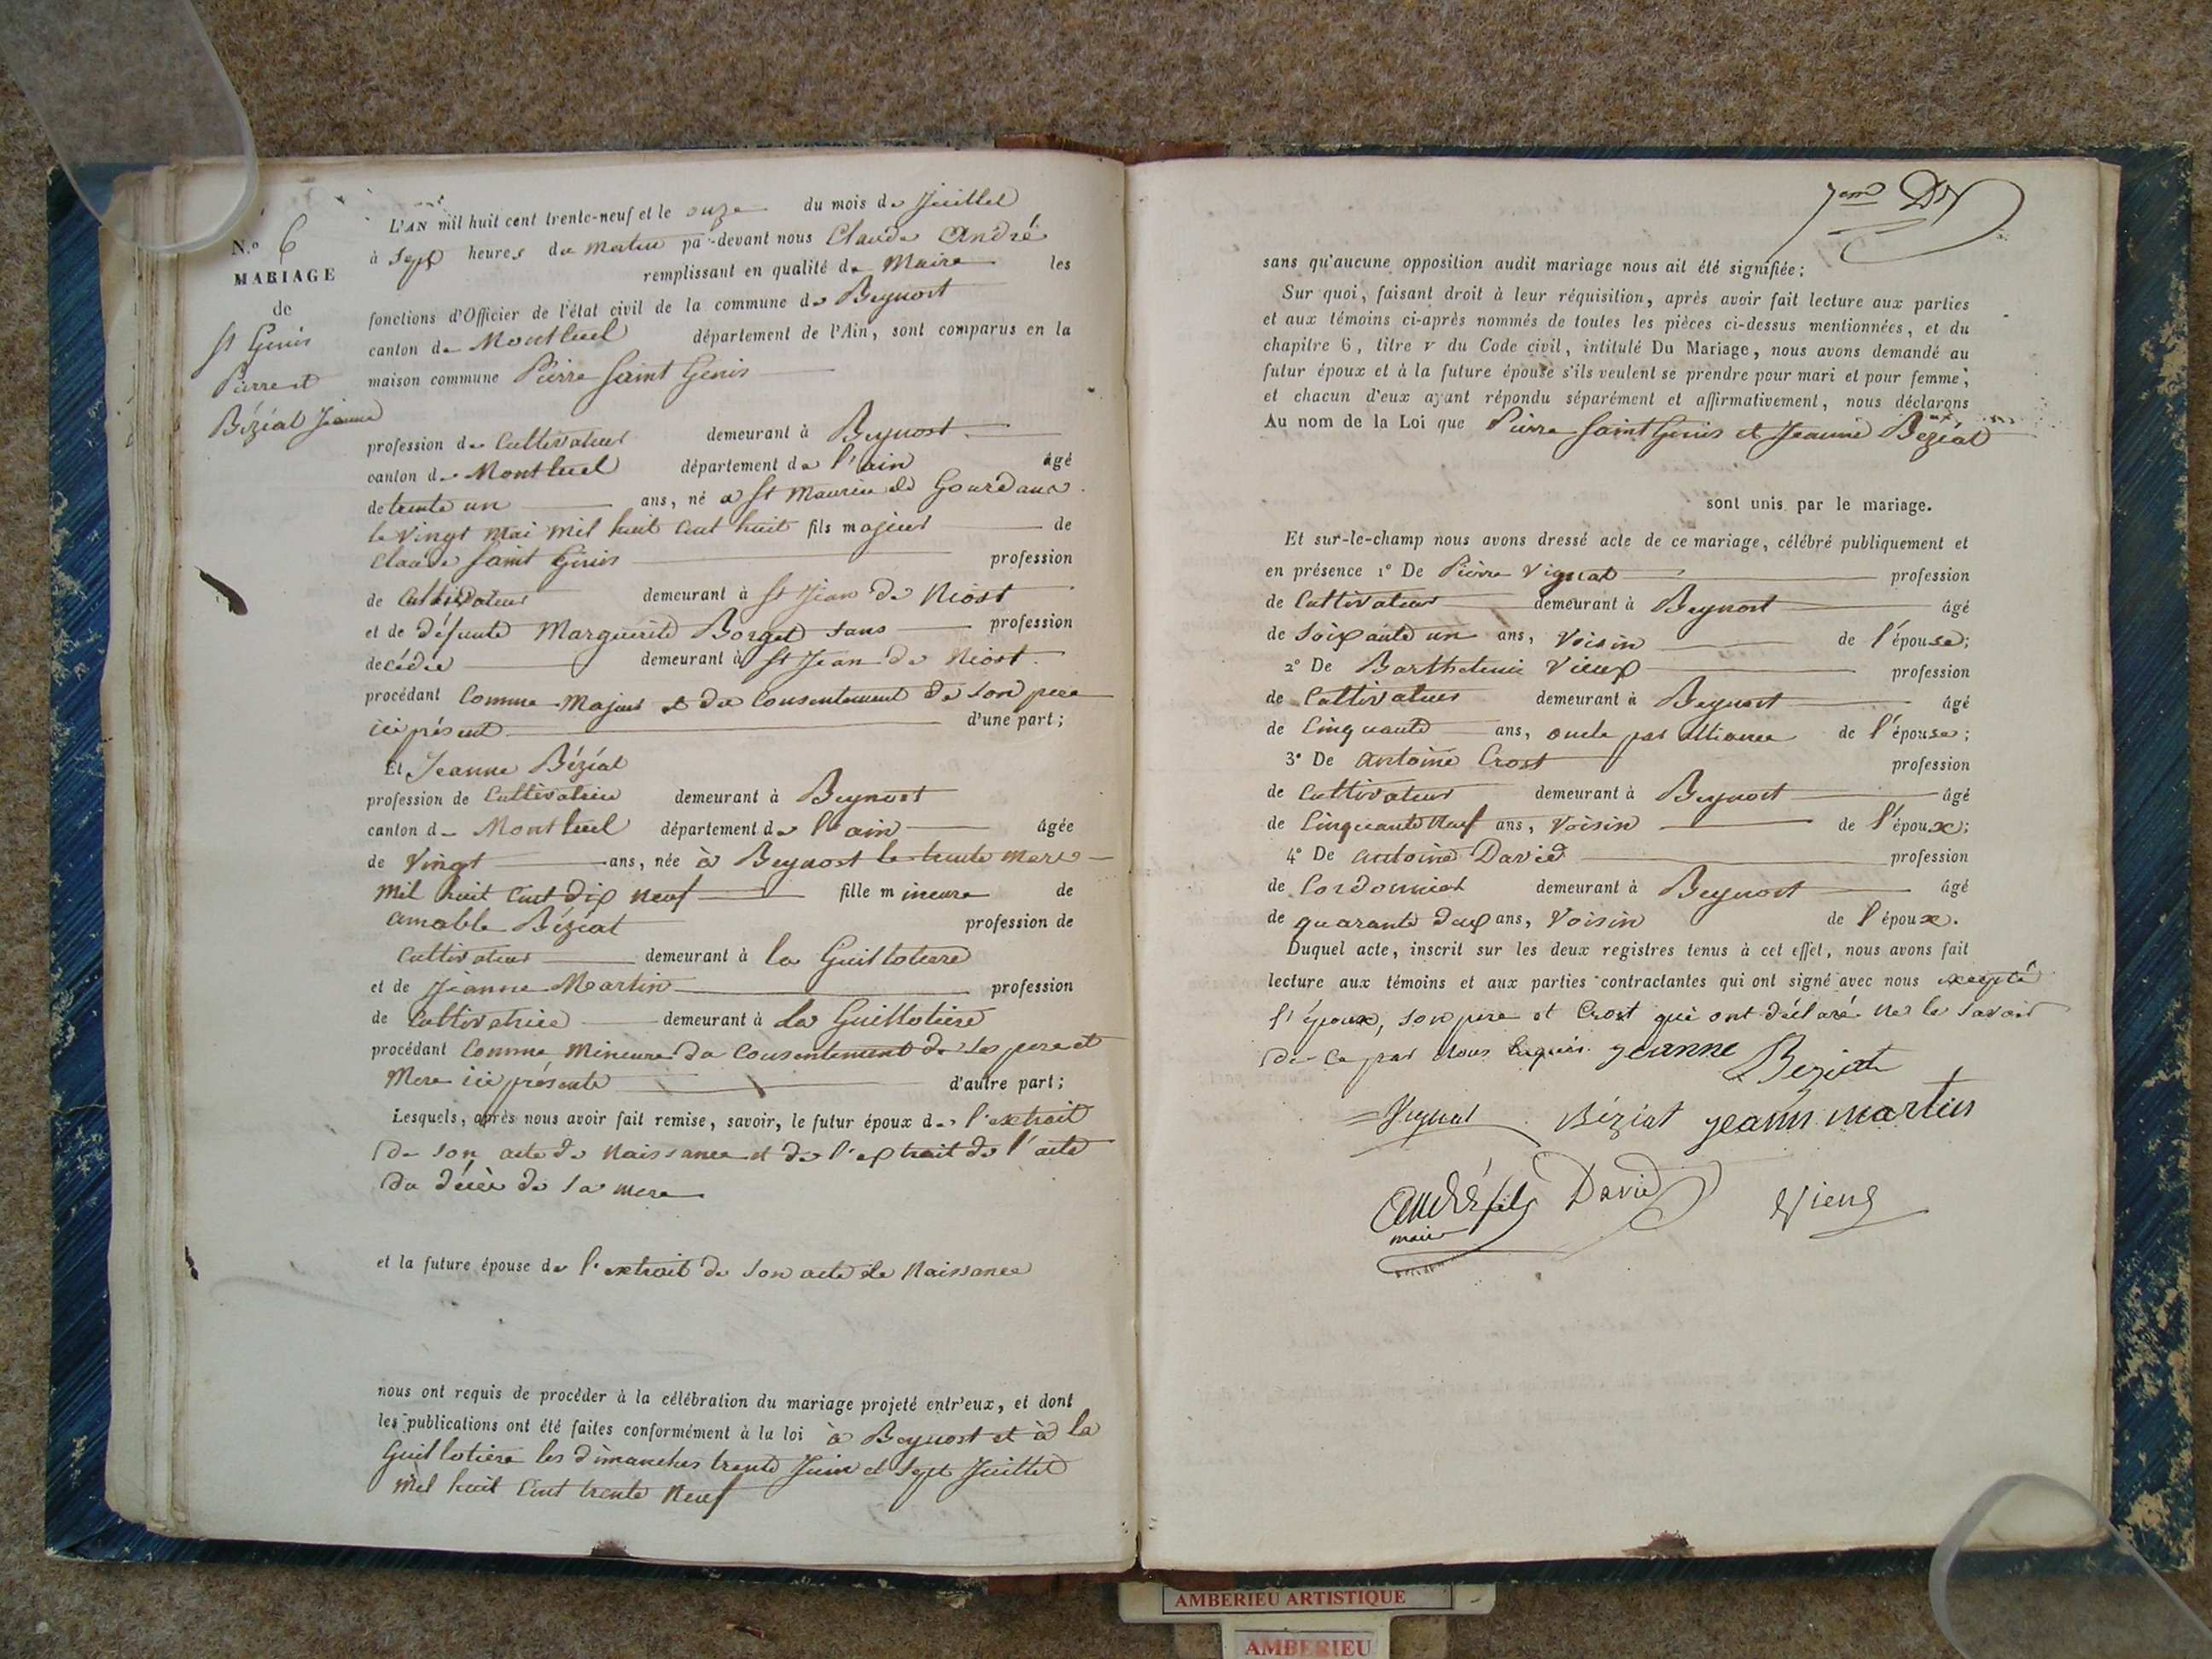 N.º 6
MARIAGE
de
St Genis
Pierre et
Bézéat Jeanne
L'AN mil huit cent trente-neuf et le onze du mois de Juillet
à Sept heures du matin par-devant nous Claude André
remplissant en qualité de Maire les
fonctions d'Officier de l'état civil de la commune de Beynost
canton de Montluel département de l'Ain, sont comparus en la
maison commune Pierre Saint Genis
profession de Cultivateur demeurant à Beynost
canton de Montluel département de l'ain âgé
de trente un ans, né a St Maurice de Gourdans
le Vingt Mai Mil huit Cent huit fils majeur de
Claude Saint Genis profession
de Cultivateur demeurant à St Jean de Niost
et de défunte Marguerite Borget sans profession
décédée demeurant à St Jean de Niost.
procédant Comme Majeur et du Consentement de son pere
ici présent d'une part;
Et Jeanne Béziat
profession de Cultivatrice demeurant à Beynost
canton de Montluel département de l'ain âgée
de Vingt ans, née à Beynost le trente Mars
Mil huit Cent dix neuf fille mineure de
Amable Béziat profession de
Cultivateur demeurant à la Guillotiere
et de Jeanne Martin profession
de Cultivatrice demeurant à la Guillotiere
procédant Comme Mineure du Consentement de ses pere et
Mere ici présents d'autre part;
Lesquels, après nous avoir fait remise, savoir, le futur époux de l'extrait
de son acte de Naissance et de l'extrait de l'acte
du décès de sa mere
et la future épouse de l'extrait de son acte de Naissance
nous ont requis de procéder à la célébration du mariage projeté entr'eux, et dont
les publications ont été faites conformément à la loi à Beynost et à la
Guillotiere les dimanches trente Juin et Sept Juillet
Mil huit Cent trente Neuf
sans qu'aucune opposition audit mariage nous ait été signifiée;
Sur quoi, faisant droit à leur réquisition, après avoir fait lecture aux parties
et aux témoins ci-après nommés de toutes les pièces ci-dessus mentionnées, et du
chapitre 6, titre v du Code civil, intitulé Du Mariage, nous avons demandé au
futur époux et à la future épouse s'ils veulent se prendre pour mari et pour femme;
et chacun d'eux ayant répondu séparément et affirmativement, nous déclarons
Au nom de la Loi que Pierre Saint Genis et Jeanne Béziat
sont unis par le mariage.
Et sur-le-champ nous avons dressé acte de ce mariage, célébré publiquement et
en présence 1º De Pierre Vignat profession
de Cultivateur demeurant à Beynost âgé
de Soixante un ans, Voisin de l'épouse;
2º De Barthelemie Vieux profession
de Cultivateur demeurant à Beynost âgé
de Cinquante ans, oncle par alliance de l'épouse;
3º De Antoine Crost profession
de Cultivateur demeurant à Beynost âgé
de Cinquante Neuf ans, Voisin de l'époux;
4º De Antoine David profession
de Cordonnier demeurant à Beynost âgé
de quarante deux ans, Voisin de l'époux.
Duquel acte, inscrit sur les deux registres tenus à cet effet, nous avons fait
lecture aux témoins et aux parties contractantes qui ont signé avec nous excepté
l'époux, son pere et Crost qui ont déclaré ne le savoir
de ce par Nous Enquis. Jeanne Beziat
Vignat Béziat jeann martin
André fils David Vieux
maire
AMBERIEU ARTISTIQUE
AMBERIEU